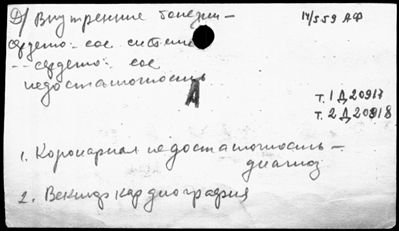 Д) Внутренние болезни — 14/559 АФ
Сердечно-сос. система
-- сердечно-сос.
недостаточность
А
т. 1 Д 20917
т. 2 Д 20918
1. Коронарная недостаточность —
диагноз
2. Вектор кардиография